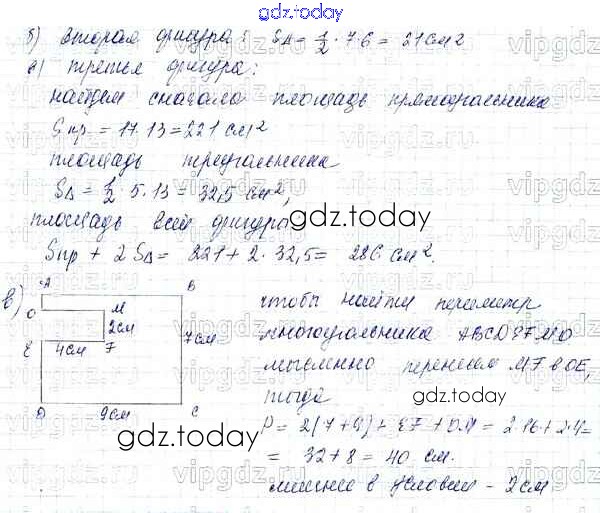 gdz.today
б) вторая фигура: SΔ = 1/2 · 7·6 = 21 см²
в) третья фигура:
найдем сначала площадь прямоугольника
Sпр = 17·13 = 221 см²
площадь треугольника
SΔ = 1/2 · 5·13 = 32,5 см²,
площадь всей фигуры
gdz.today
Sпр + 2SΔ = 221 + 2·32,5 = 286 см².
в)
A B
O M
2см
7см
E 4см F
D 9см C
gdz.today
чтобы найти периметр
многоугольника ABCDEFMO
мысленно перенесем MF в OE,
тогда
P = 2(7+9) + EF + OM = 2·16 + 2·4 =
= 32 + 8 = 40 см.
лишнее в условии - 2см
gdz.today